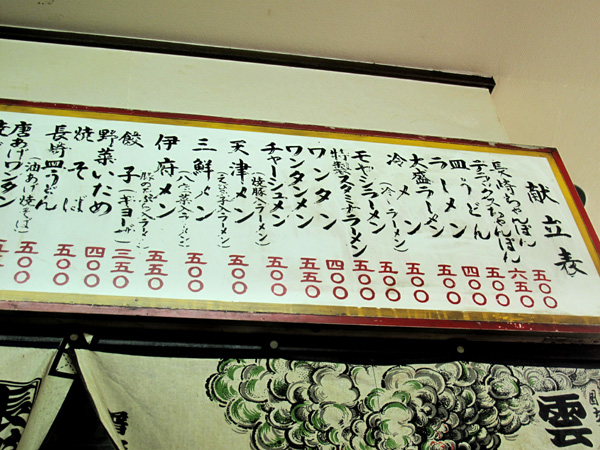 献立表
長崎ちゃんぽん 五〇〇
デラックスちゃんぽん 六五〇
皿うどん 五〇〇
ラーメン 四〇〇
大盛ラーメン 五〇〇
冷メン（冷しラーメン） 五〇〇
モヤシラーメン 五〇〇
特製スタミナラーメン 五〇〇
ワンタン 四〇〇
ワンタンメン 五五〇
チャーシュメン（焼豚入ラーメン） 五〇〇
天津メン 五〇〇
三鮮メン 五〇〇
伊府メン 五五〇
餃子（ギョーザ） 三五〇
野菜いため 四〇〇
焼そば 五〇〇
長崎皿うどん（油あげ焼そば） 五〇〇
唐あげワンタン
雲
長